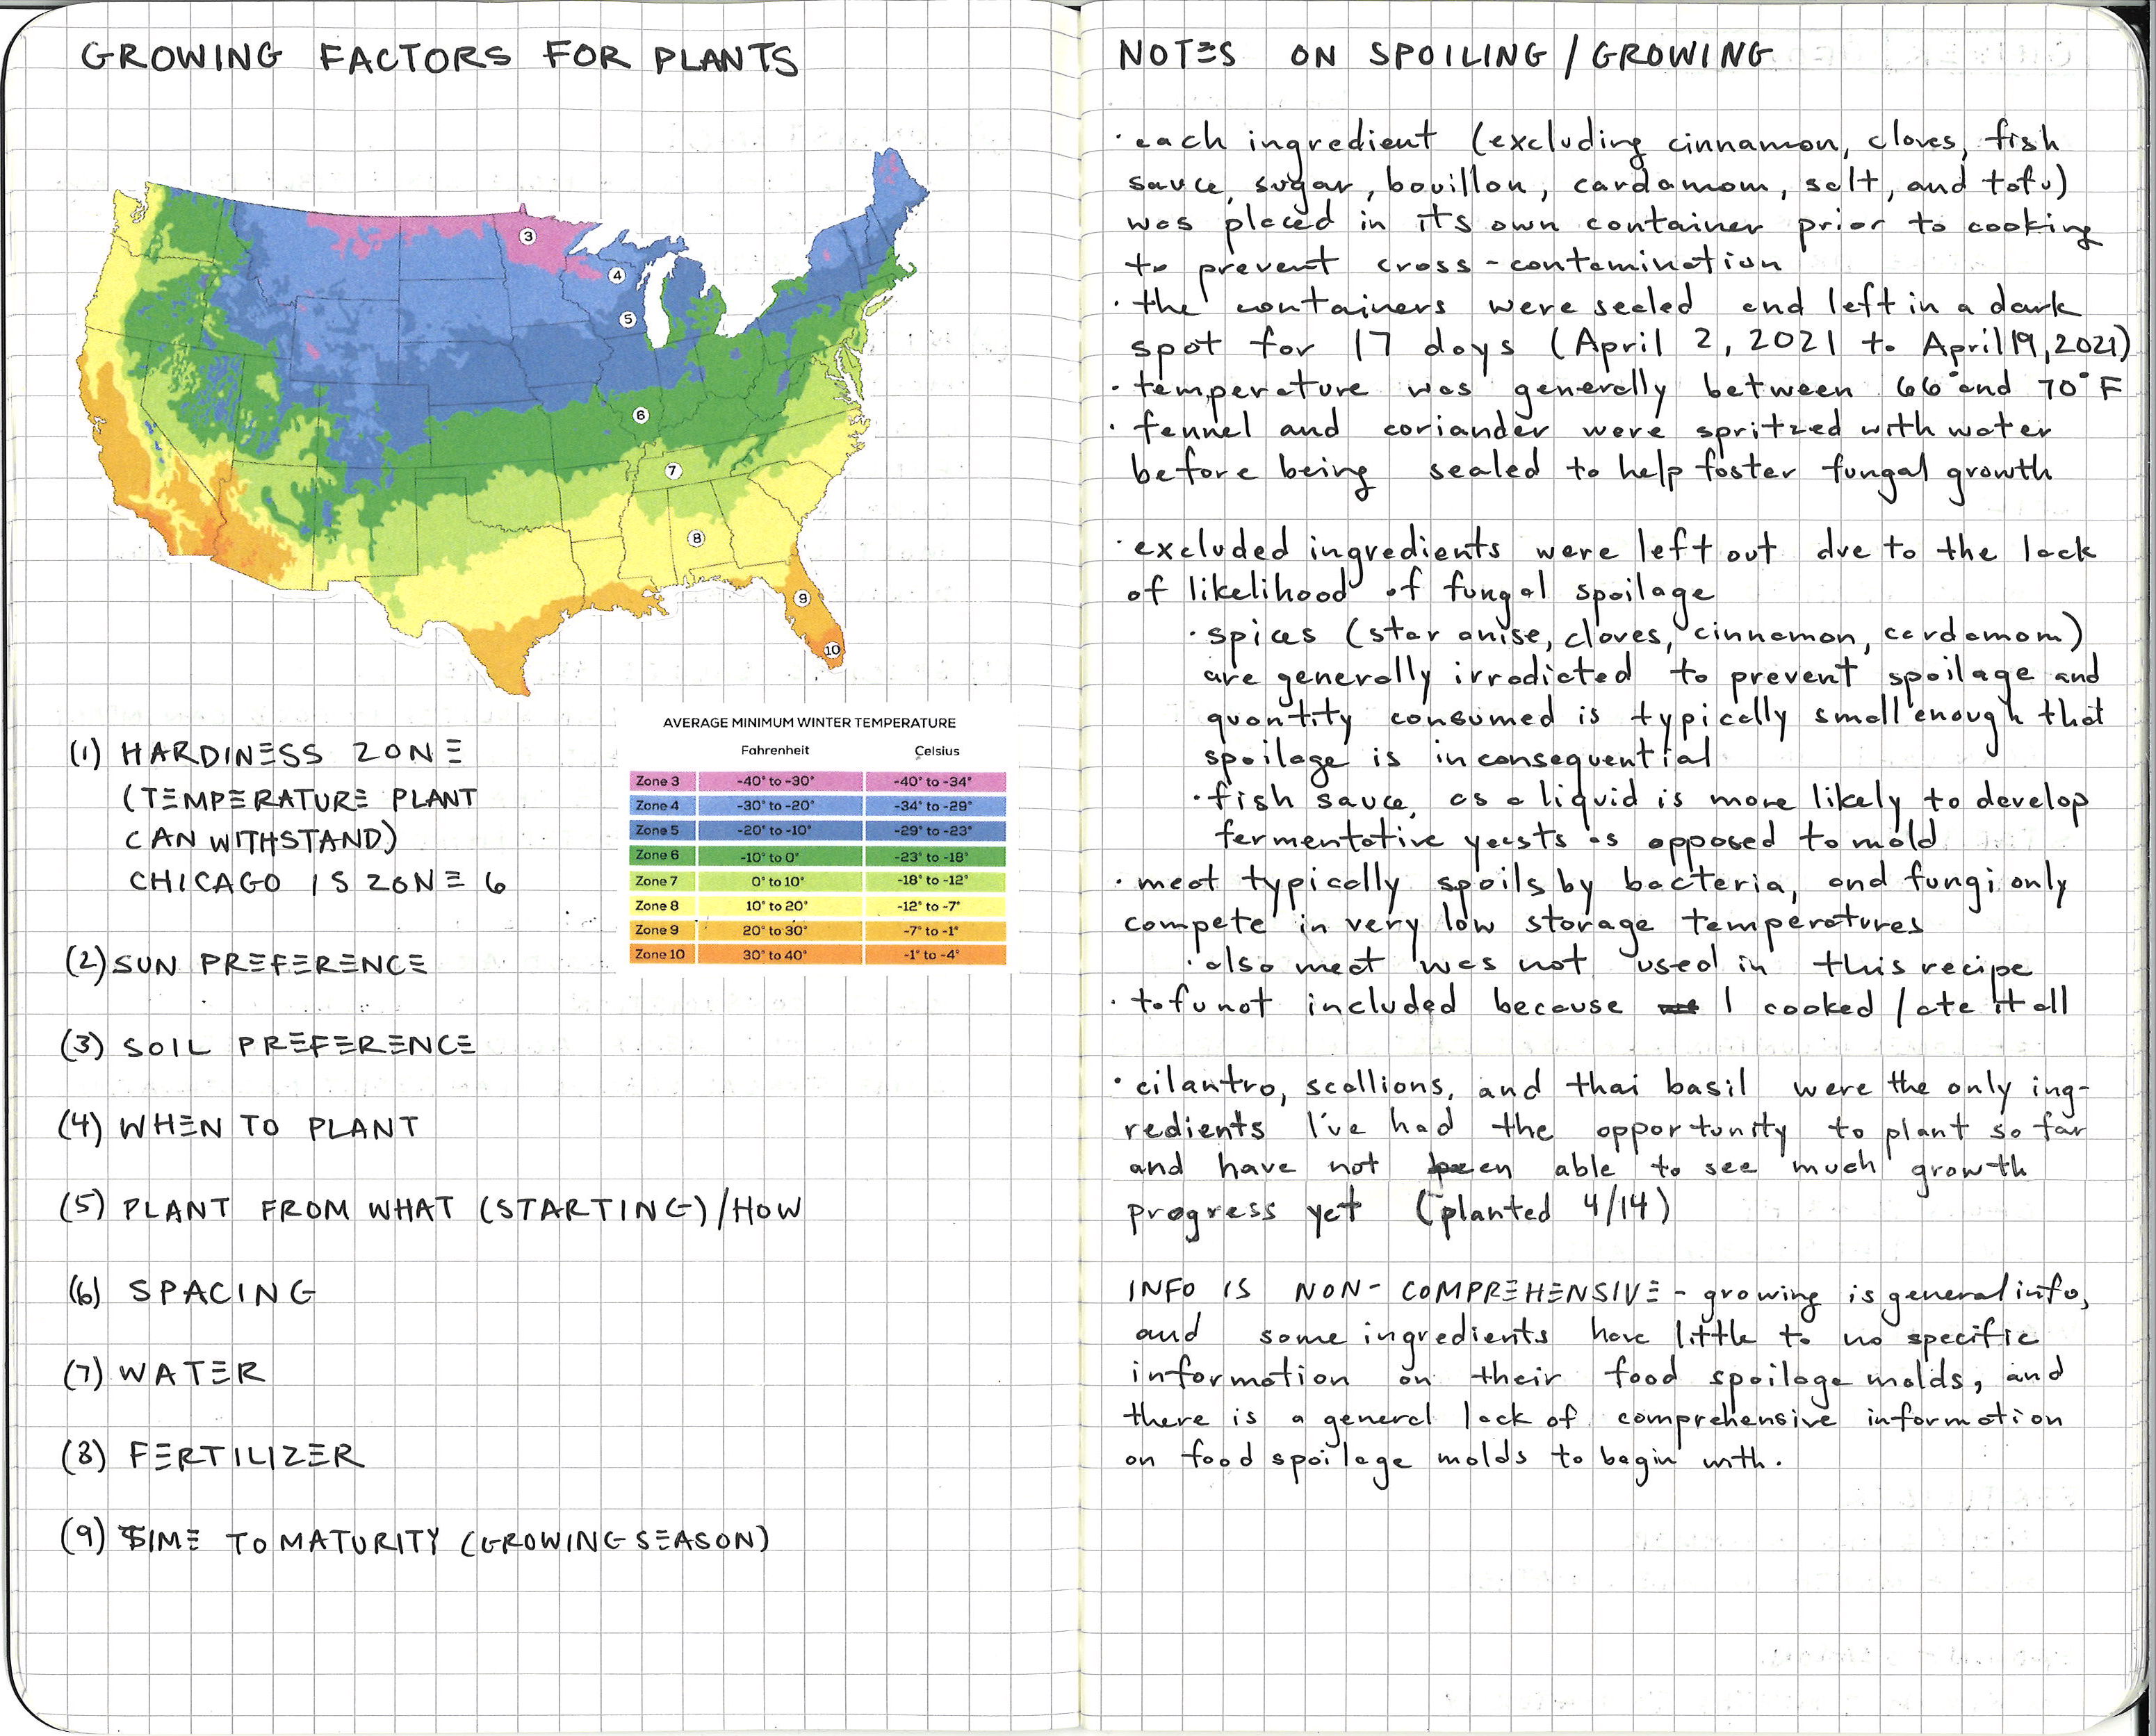 GROWING FACTORS FOR PLANTS
3
4
5
6
7
8
9
10
AVERAGE MINIMUM WINTER TEMPERATURE
Fahrenheit Celsius
Zone 3 -40° to -30° -40° to -34°
Zone 4 -30° to -20° -34° to -29°
Zone 5 -20° to -10° -29° to -23°
Zone 6 -10° to 0° -23° to -18°
Zone 7 0° to 10° -18° to -12°
Zone 8 10° to 20° -12° to -7°
Zone 9 20° to 30° -7° to -1°
Zone 10 30° to 40° -1° to -4°
(1) HARDINESS ZONE
(TEMPERATURE PLANT
CAN WITHSTAND)
CHICAGO IS ZONE 6
(2) SUN PREFERENCE
(3) SOIL PREFERENCE
(4) WHEN TO PLANT
(5) PLANT FROM WHAT (STARTING)/HOW
(6) SPACING
(7) WATER
(8) FERTILIZER
(9) TIME TO MATURITY (GROWING SEASON)
NOTES ON SPOILING/GROWING
· each ingredient (excluding cinnamon, cloves, fish
sauce, sugar, bouillon, cardamom, salt, and tofu)
was placed in its own container prior to cooking
to prevent cross-contamination
· the containers were sealed and left in a dark
spot for 17 days (April 2, 2021 to April 19, 2021)
· temperature was generally between 66° and 70° F
· fennel and coriander were spritzed with water
before being sealed to help foster fungal growth
· excluded ingredients were left out due to the lack
of likelihood of fungal spoilage
· spices (star anise, cloves, cinnamon, cardamom)
are generally irradicted to prevent spoilage and
quantity consumed is typically small enough that
spoilage is inconsequential
· fish sauce, as a liquid is more likely to develop
fermentative yeasts as opposed to mold
· meat typically spoils by bacteria, and fungi only
compete in very low storage temperatures
· also meat was not used in this recipe
· tofu not included because I cooked/ate it all
· cilantro, scallions, and thai basil were the only ing-
redients I've had the opportunity to plant so far
and have not been able to see much growth
progress yet (planted 4/14)
INFO IS NON-COMPREHENSIVE - growing is general info,
and some ingredients have little to no specific
information on their food spoilage molds, and
there is a general lack of comprehensive information
on food spoilage molds to begin with.